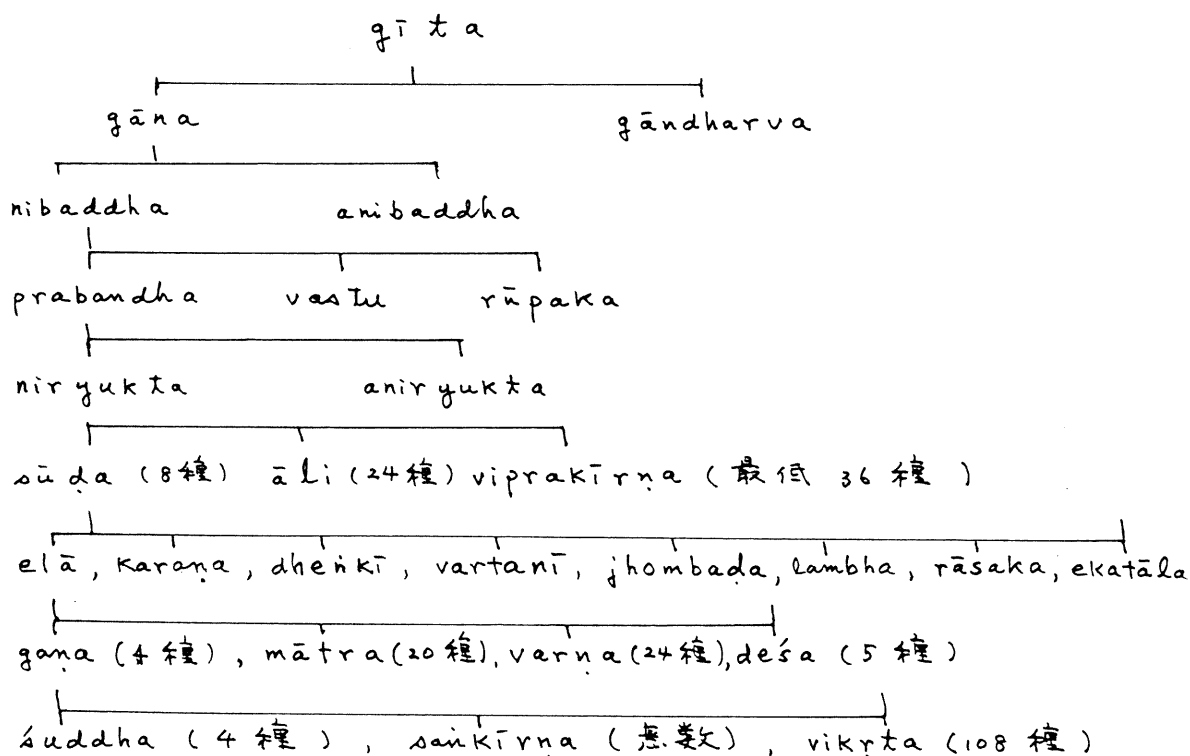 gīta
gāna gāndharva
nibaddha anibaddha
prabandha vastu rūpaka
niryukta aniryukta
sūḍa (8種) āli (24種) viprakīrṇa (最低 36種)
elā, karaṇa, dheṅkī, vartanī, jhombaḍa, lambha, rāsaka, ekatāla
gaṇa (4種), mātra (20種), varṇa (24種), deśa (5種)
śuddha (4種), saṅkīrṇa (無数), vikṛta (108種)